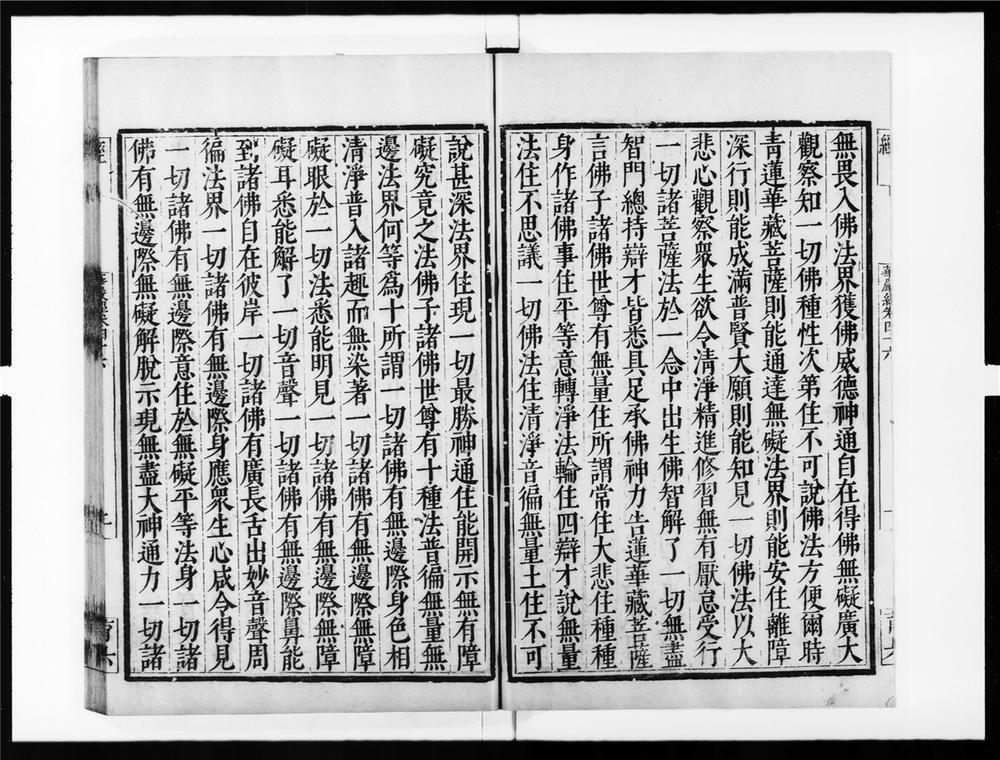 經
華嚴經卷四十六
無畏入佛法界獲佛威德神通自在得佛無礙廣大
觀察知一切佛種性次第住不可說佛法方便爾時
青蓮華藏菩薩則能通達無礙法界則能安住離障
深行則能成滿普賢大願則能知見一切佛法以大
悲心觀察衆生欲令清淨精進修習無有厭怠受行
一切諸菩薩法於一念中出生佛智解了一切無盡
智門總持辯才皆悉具足承佛神力告蓮華藏菩薩
言佛子諸佛世尊有無量住所謂常住大悲住種種
身作諸佛事住平等意轉淨法輪住四辯才說無量
法住不思議一切佛法住清淨音徧無量土住不可
說甚深法界住現一切最勝神通住能開示無有障
礙究竟之法佛子諸佛世尊有十種法普徧無量無
邊法界何等爲十所謂一切諸佛有無邊際身色相
清淨普入諸趣而無染著一切諸佛有無邊際無障
礙眼於一切法悉能明見一切諸佛有無邊際無障
礙耳悉能解了一切音聲一切諸佛有無邊際鼻能
到諸佛自在彼岸一切諸佛有廣長舌出妙音聲周
徧法界一切諸佛有無邊際身應衆生心咸令得見
一切諸佛有無邊際意住於無礙平等法身一切諸
佛有無邊際無礙解脫示現無盡大神通力一切諸